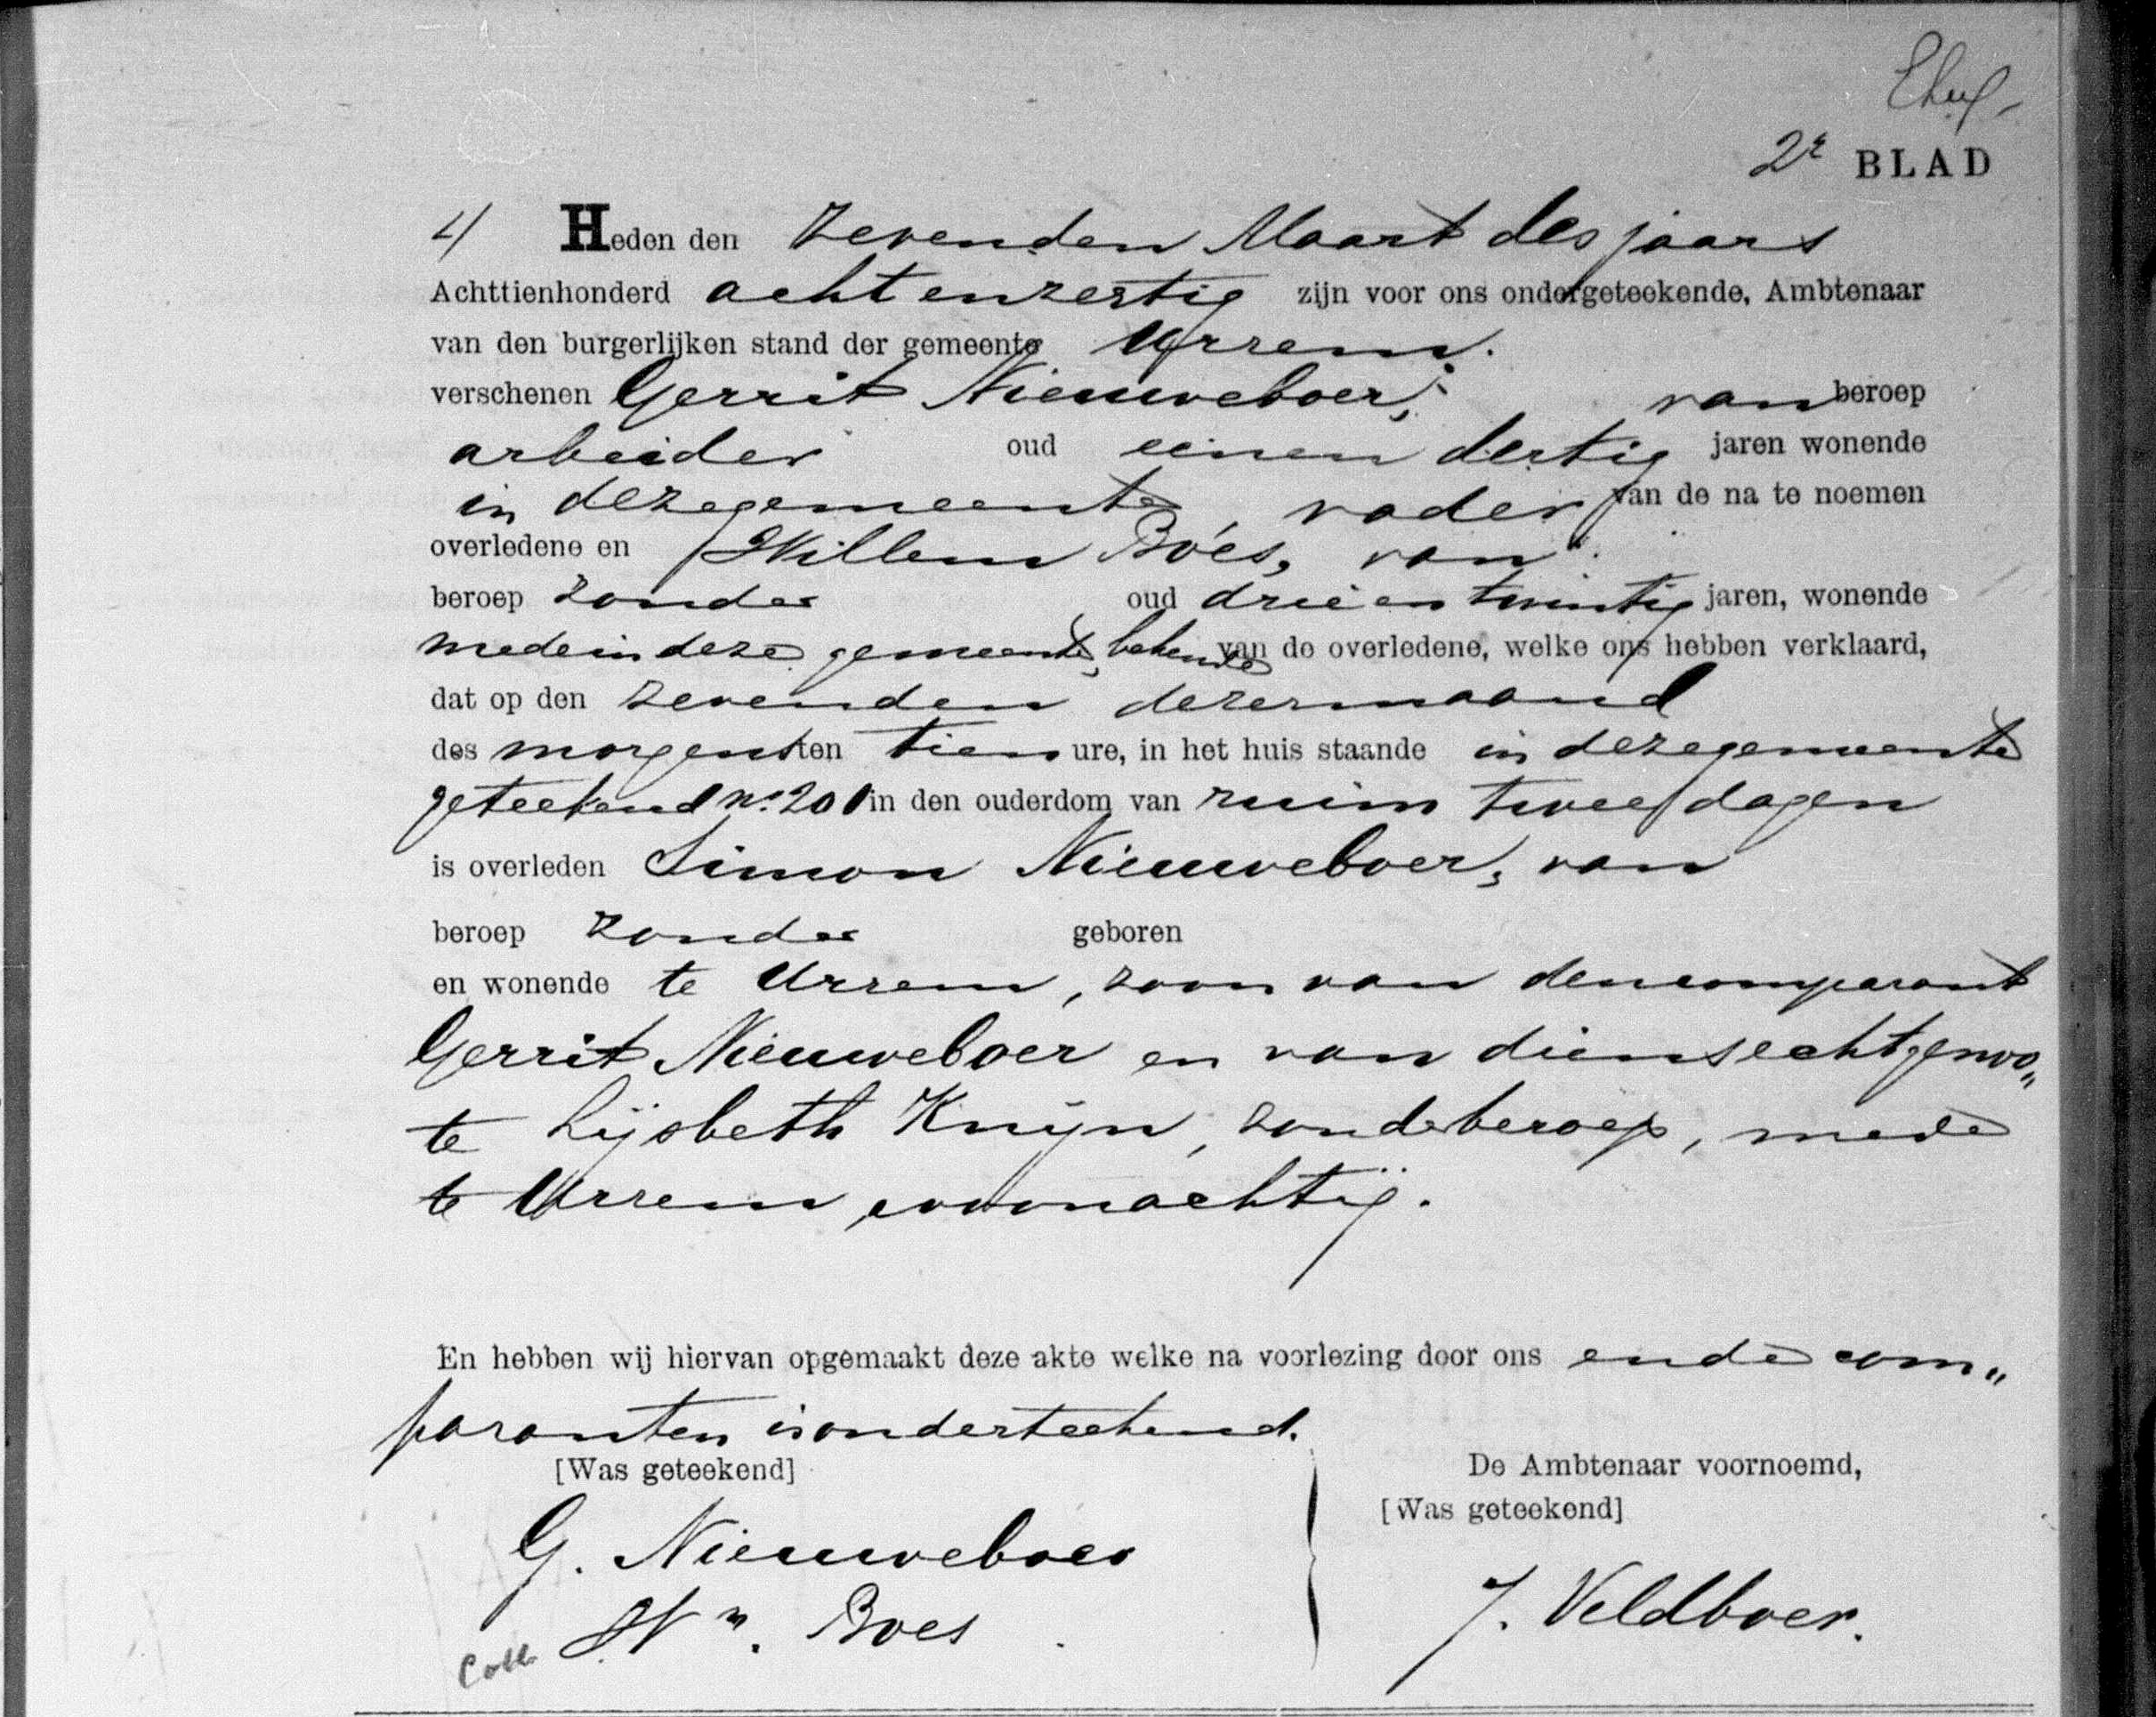 2e BLAD
4 Heden den zevenden Maart des jaars
Achttienhonderd achtenzestig zijn voor ons ondergeteekende, Ambtenaar
van den burgerlijken stand der gemeente Ursem.
verschenen Gerrit Nieuweboer, van beroep
arbeider oud eenen dertig jaren wonende
in deze gemeente, vader van de na te noemen
overledene en Willem Boes, van
beroep zonder oud drieentwintig jaren, wonende
mede in deze gemeente, bekende van de overledene, welke ons hebben verklaard,
dat op den zevenden dezer maand
des morgens ten tien ure, in het huis staande in deze gemeente
geteekend No. 200 in den ouderdom van ruim twee dagen
is overleden Simon Nieuweboer, van
beroep zonder geboren
en wonende te Ursem, zoon van den comparant
Gerrit Nieuweboer en van diens echtgenoo„
te Lijsbeth Knijn, zonder beroep, mede
te Ursem woonachtig.
En hebben wij hiervan opgemaakt deze akte welke na voorlezing door ons en de com„
paranten is onderteekend.
[Was geteekend] De Ambtenaar voornoemd,
[Was geteekend]
G. Nieuweboer
Wm. Boes J. Veldboer.
Coll.